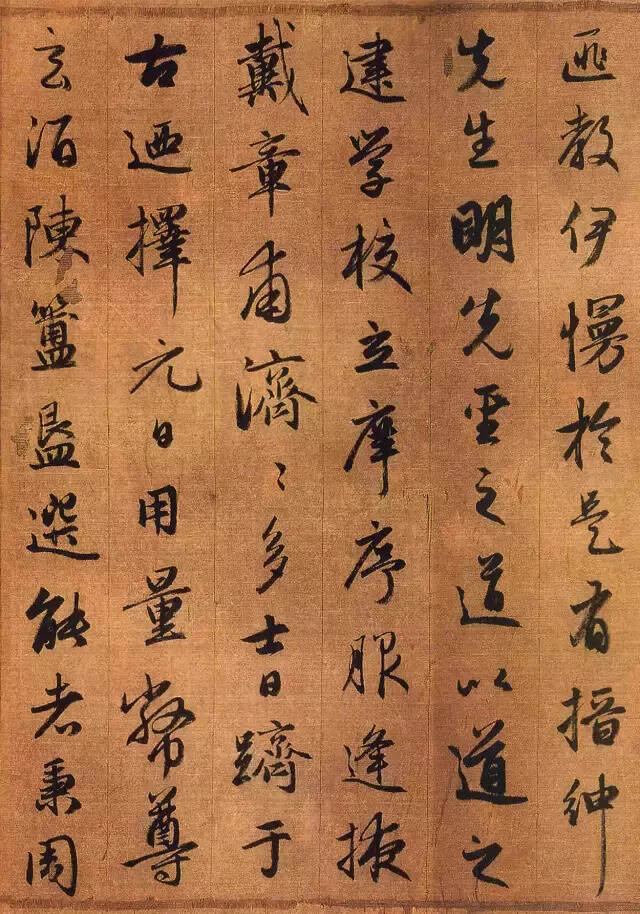 匪教伊慢於是有搢紳
先生明先王之道以道之
建学校立庠序服逢掖
戴章甫濟〻多士日躋于
古迺擇元日用量幣尊
玄酒陳簠簋選能者秉周